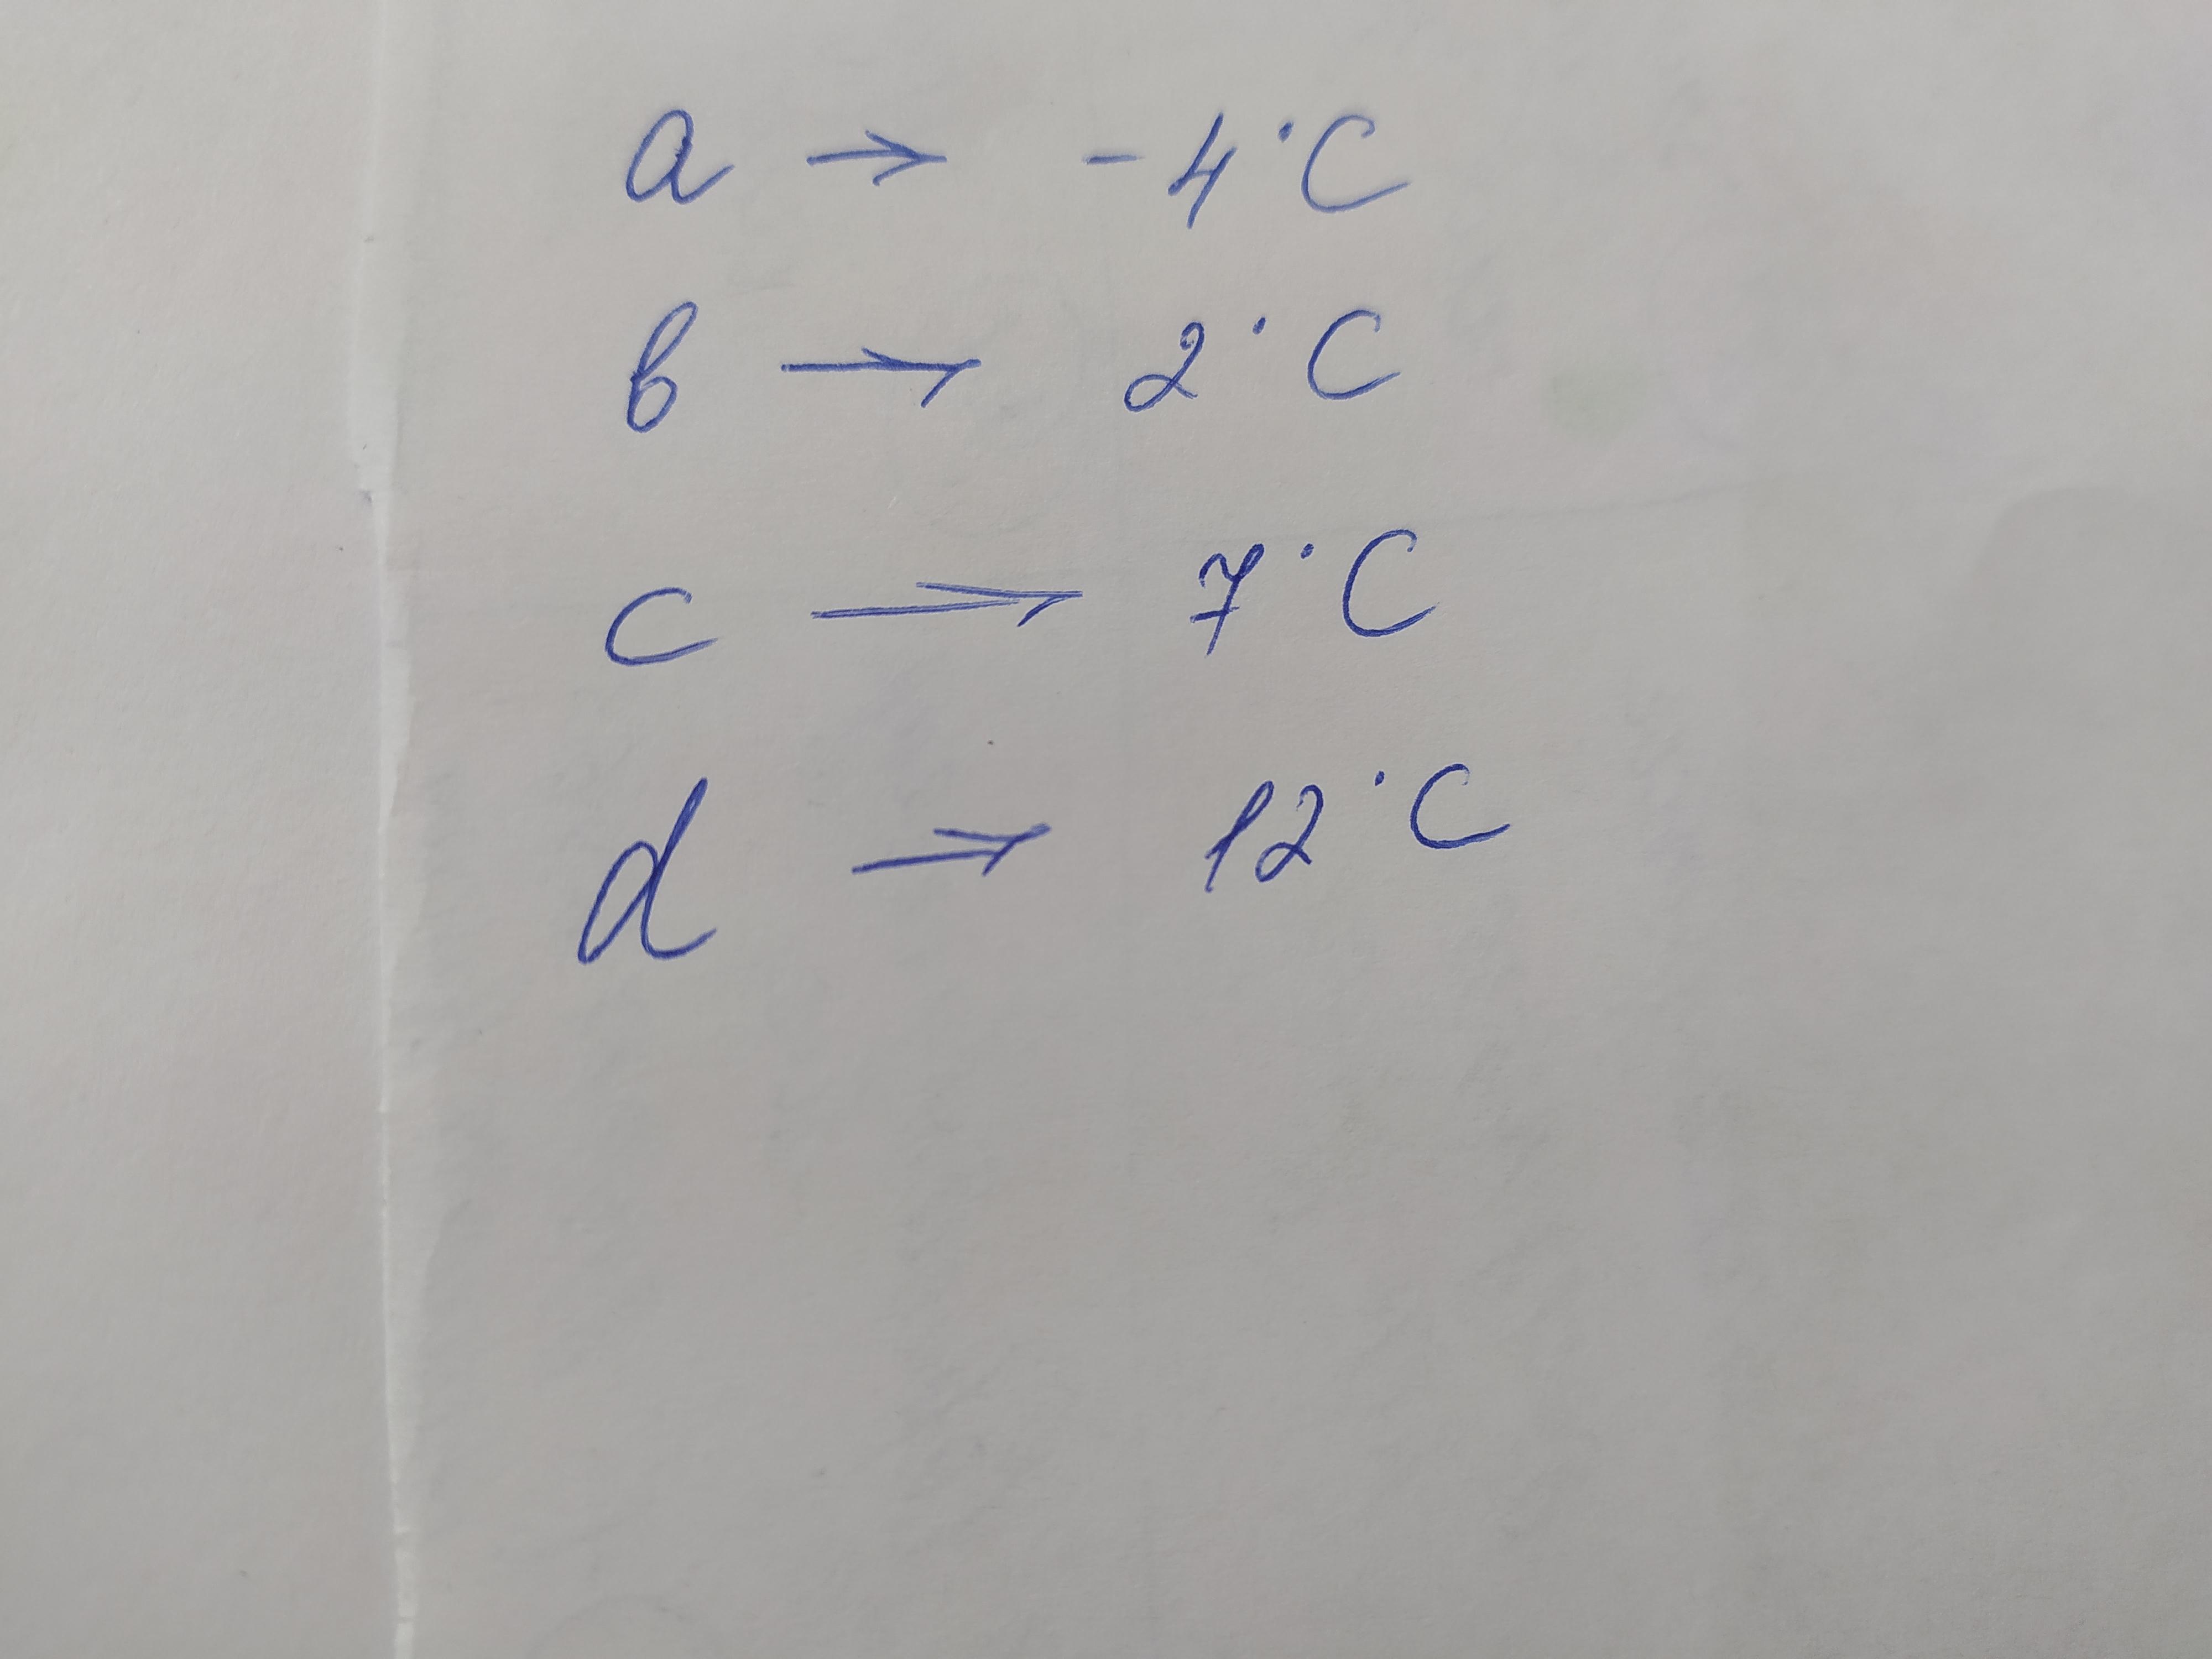 a → -4°C
b → 2°C
c → 7°C
d → 12°C